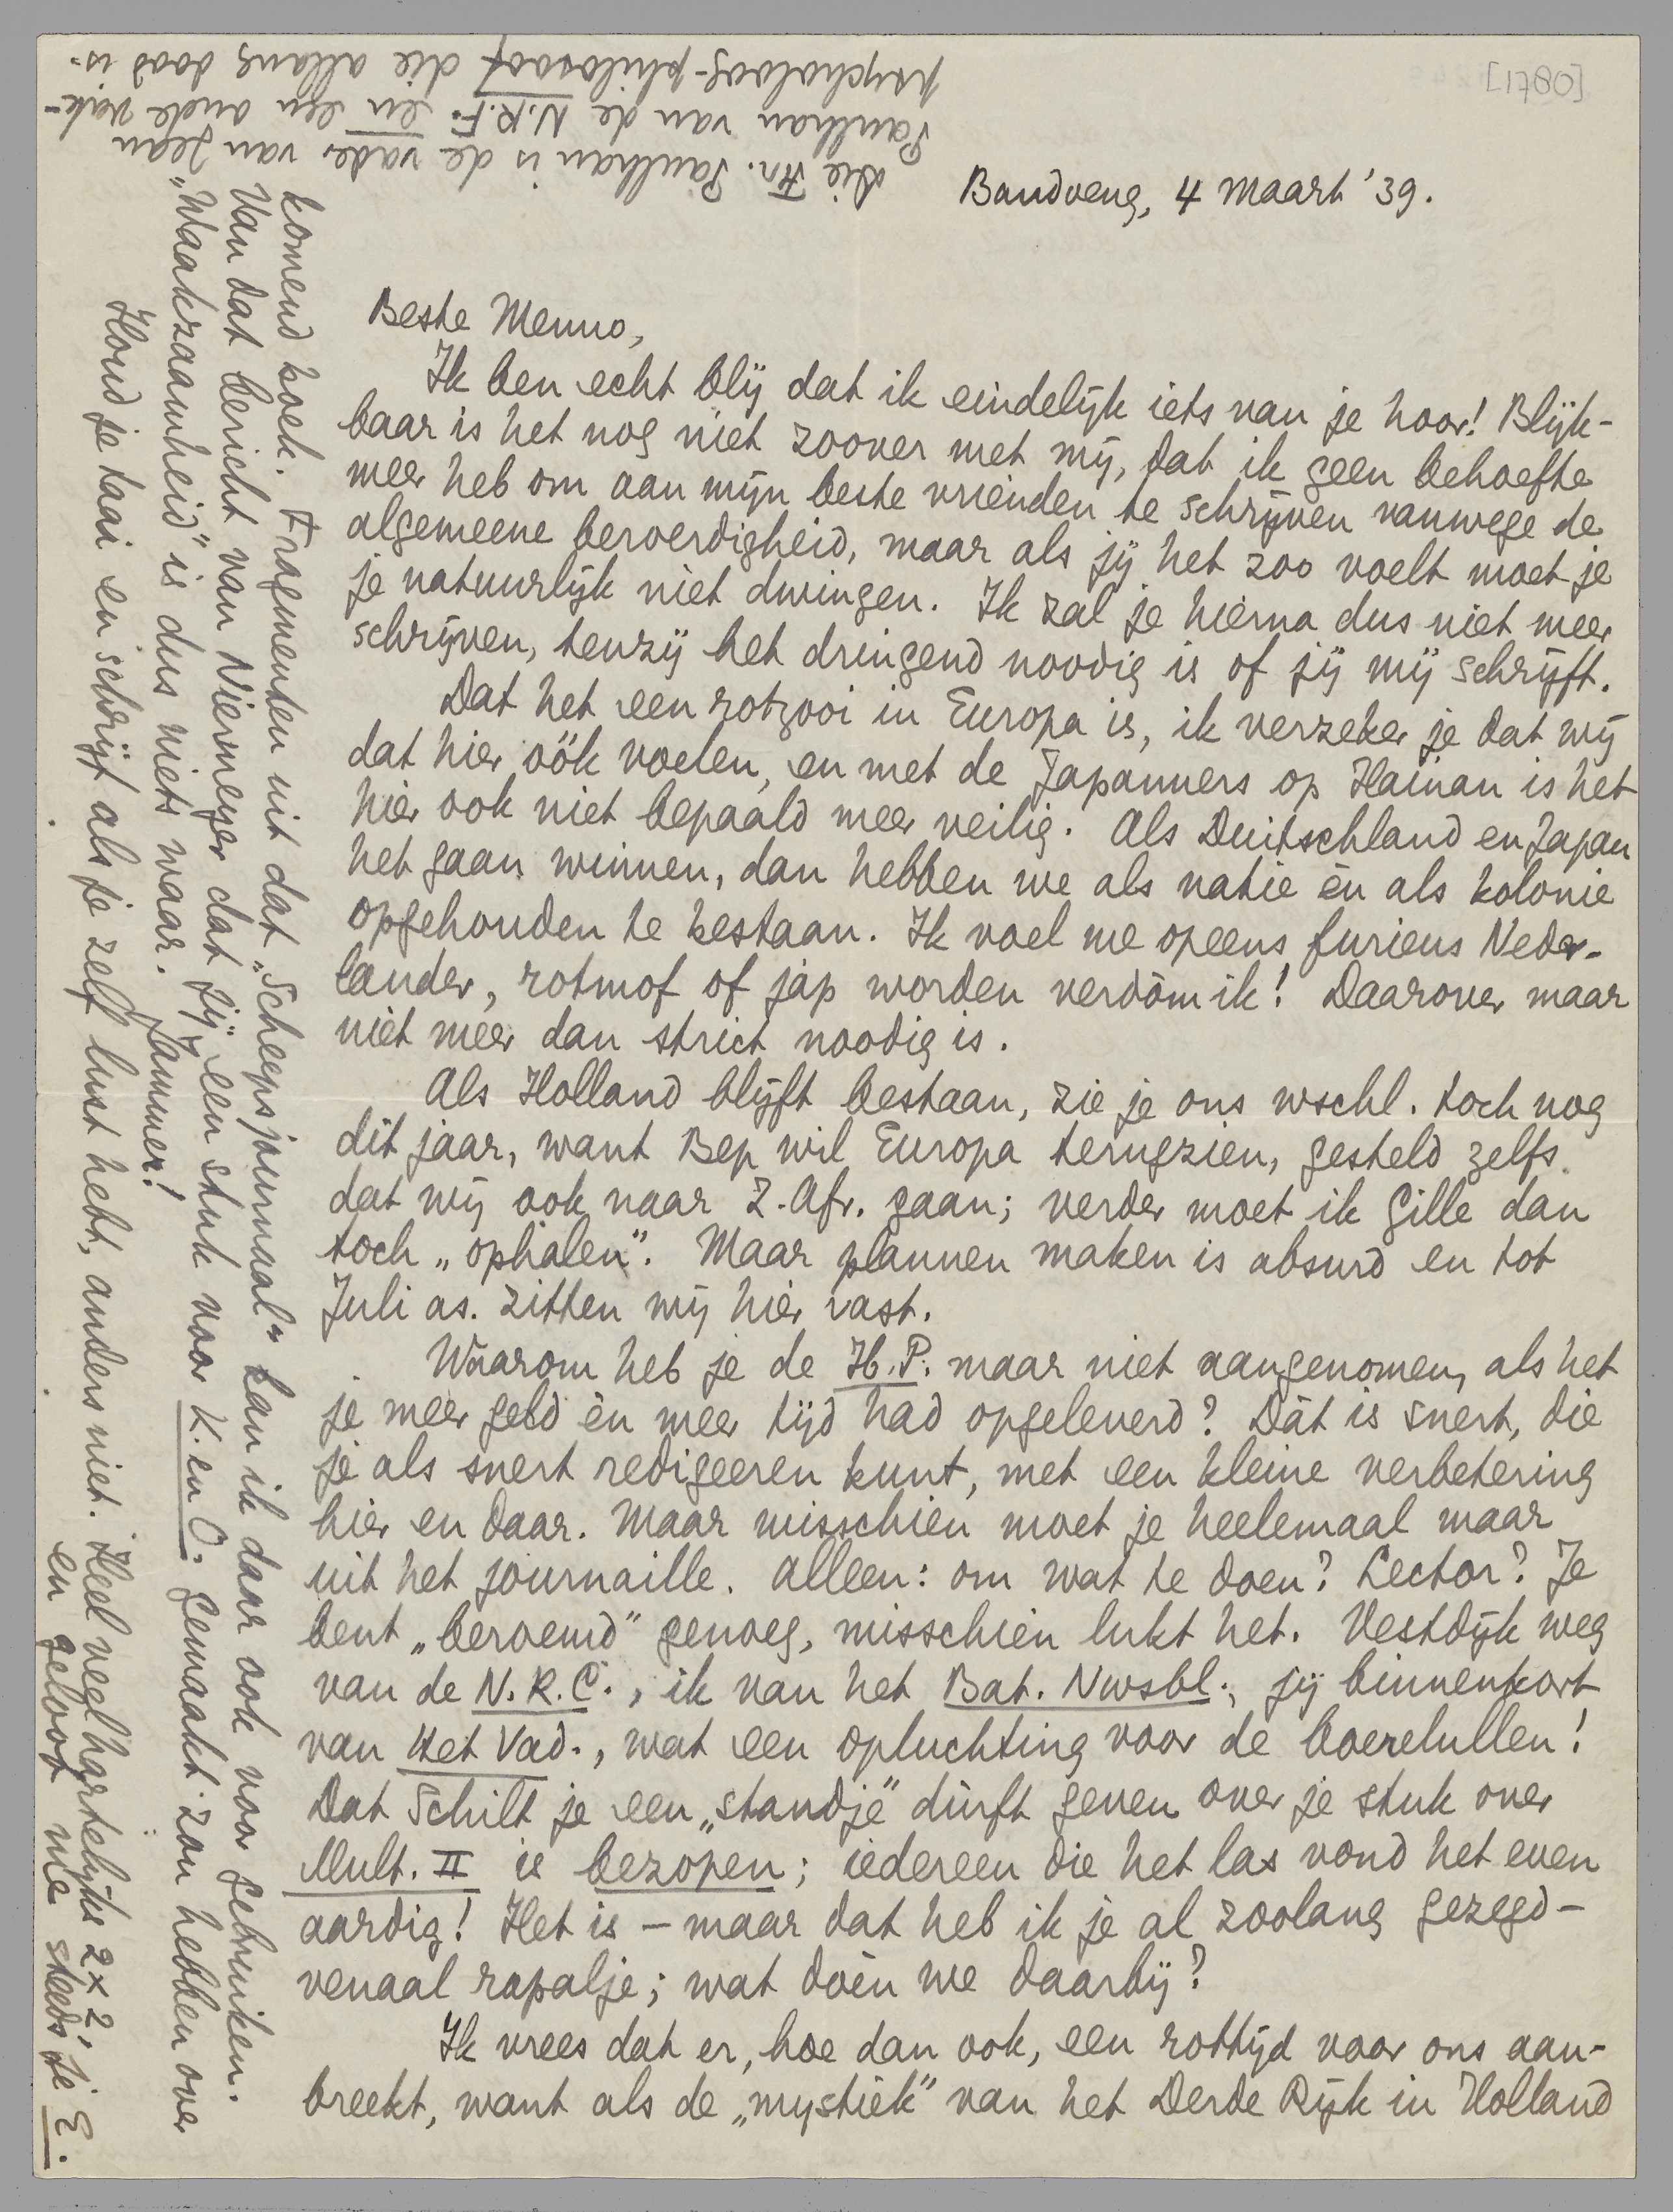 [1780]
Bandoeng, 4 Maart '39.
Beste Menno,
Ik ben echt blij dat ik eindelijk iets van je hoor! Blijk-
baar is het nog niet zoover met mij, dat ik geen behoefte
meer heb om aan mijn beste vrienden te schrijven vanwege de
algemeene beroerdigheid, maar als jij het zoo voelt moet je
je natuurlijk niet dwingen. Ik zal je hierna dus niet meer
schrijven, tenzij het dringend noodig is of jij mij schrijft.
Dat het een rotzooi in Europa is, ik verzeker je dat wij
dat hier óók voelen, en met de Japanners op Hainan is het
hier ook niet bepaald meer veilig. Als Duitschland en Japan
het gaan winnen, dan hebben we als natie èn als kolonie
opgehouden te bestaan. Ik voel me opeens furieus Neder-
lander, rotmof of jap worden verdòm ik! Daarover maar
niet meer dan strict noodig is.
Als Holland blijft bestaan, zie je ons wschl. toch nog
dit jaar, want Bep wil Europa terugzien, gesteld zelfs
dat wij ook naar Z. Afr. gaan; verder moet ik Gille dan
toch „ophalen". Maar plannen maken is absurd en tot
Juli as. zitten wij hier vast.
Waarom heb je de H.P. maar niet aangenomen, als het
je meer geld èn meer tijd had opgeleverd? Dàt is snert, die
je als snert redigeeren kunt, met een kleine verbetering
hier en daar. Maar misschien moet je heelemaal maar
uit het journaille. Alleen: om wat te doen? Lector? Je
bent „beroemd" genoeg, misschien lukt het. Vestdijk weg
van de N.R.C., ik van het Bat. Nwsbl., jij binnenkort
van Het Vad., wat een opluchting voor de boerelullen!
Dat Schilt je een „standje" dùrft geven over je stuk over
Mult. II is bezopen; iedereen die het las vond het even
aardig! Het is – maar dat heb ik je al zoolang gezegd –
venaal rapalje; wat dóén we daarbij?
Ik vrees dat er, hoe dan ook, een rottijd voor ons aan-
breekt, want als de „mystiek" van het Derde Rijk in Holland
komend boek. Fragmenten uit dat „Scheepsjournaal" kan ik daar ook voor gebruiken.
Van dat bericht van Niermeyer dat jij een stuk voor K. en O. gemaakt zou hebben over
„Waakzaamheid" is dus niets waar. Jammer!
Houd je taai en schrijf als je zelf lust hebt, anders niet. Heel veel hartelijks 2 x 2,
en geloof me steeds je E.
Die Fr. Paulhan is de vader van Jean
Paulhan van de N.R.F. en een oude vak-
psycholoog-philosoof die allang dood is.